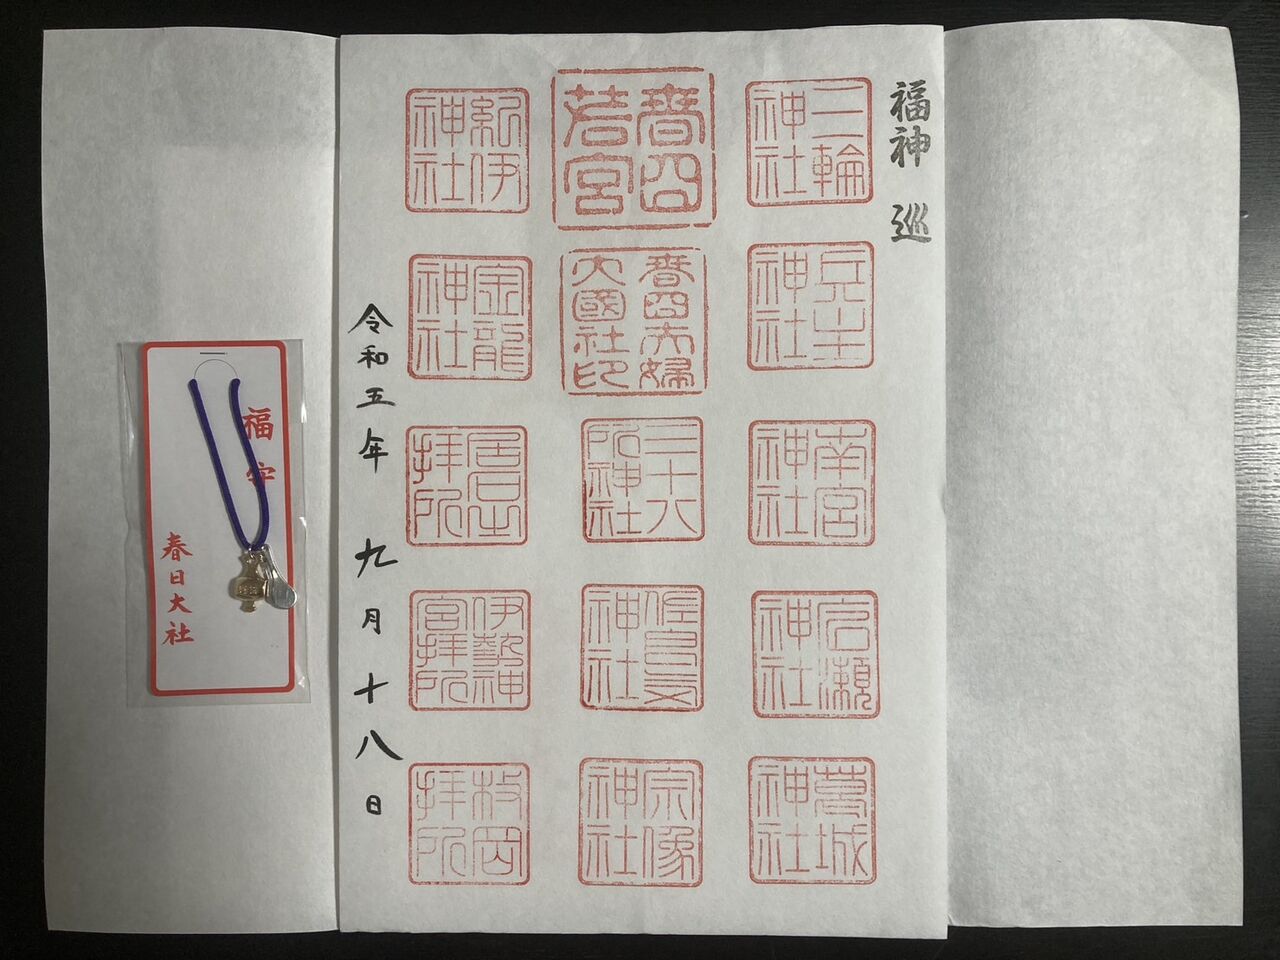 福神 巡
三輪神社
兵主神社
南宮神社
広瀬神社
葛城神社
春日若宮
春日夫婦大國社印
三十八所神社
佐良気神社
宗像神社
紀伊神社
金龍神社
拝所
伊勢神宮拝所
枚岡拝所
令和五年 九月十八日
福守
春日大社